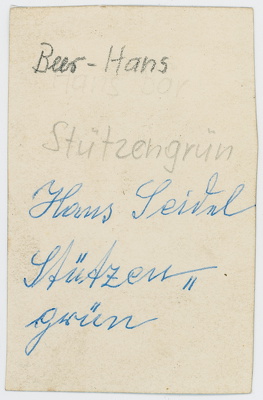 Beer-Hans
Stützengrün
Hans Seidel
Stützen„
grün